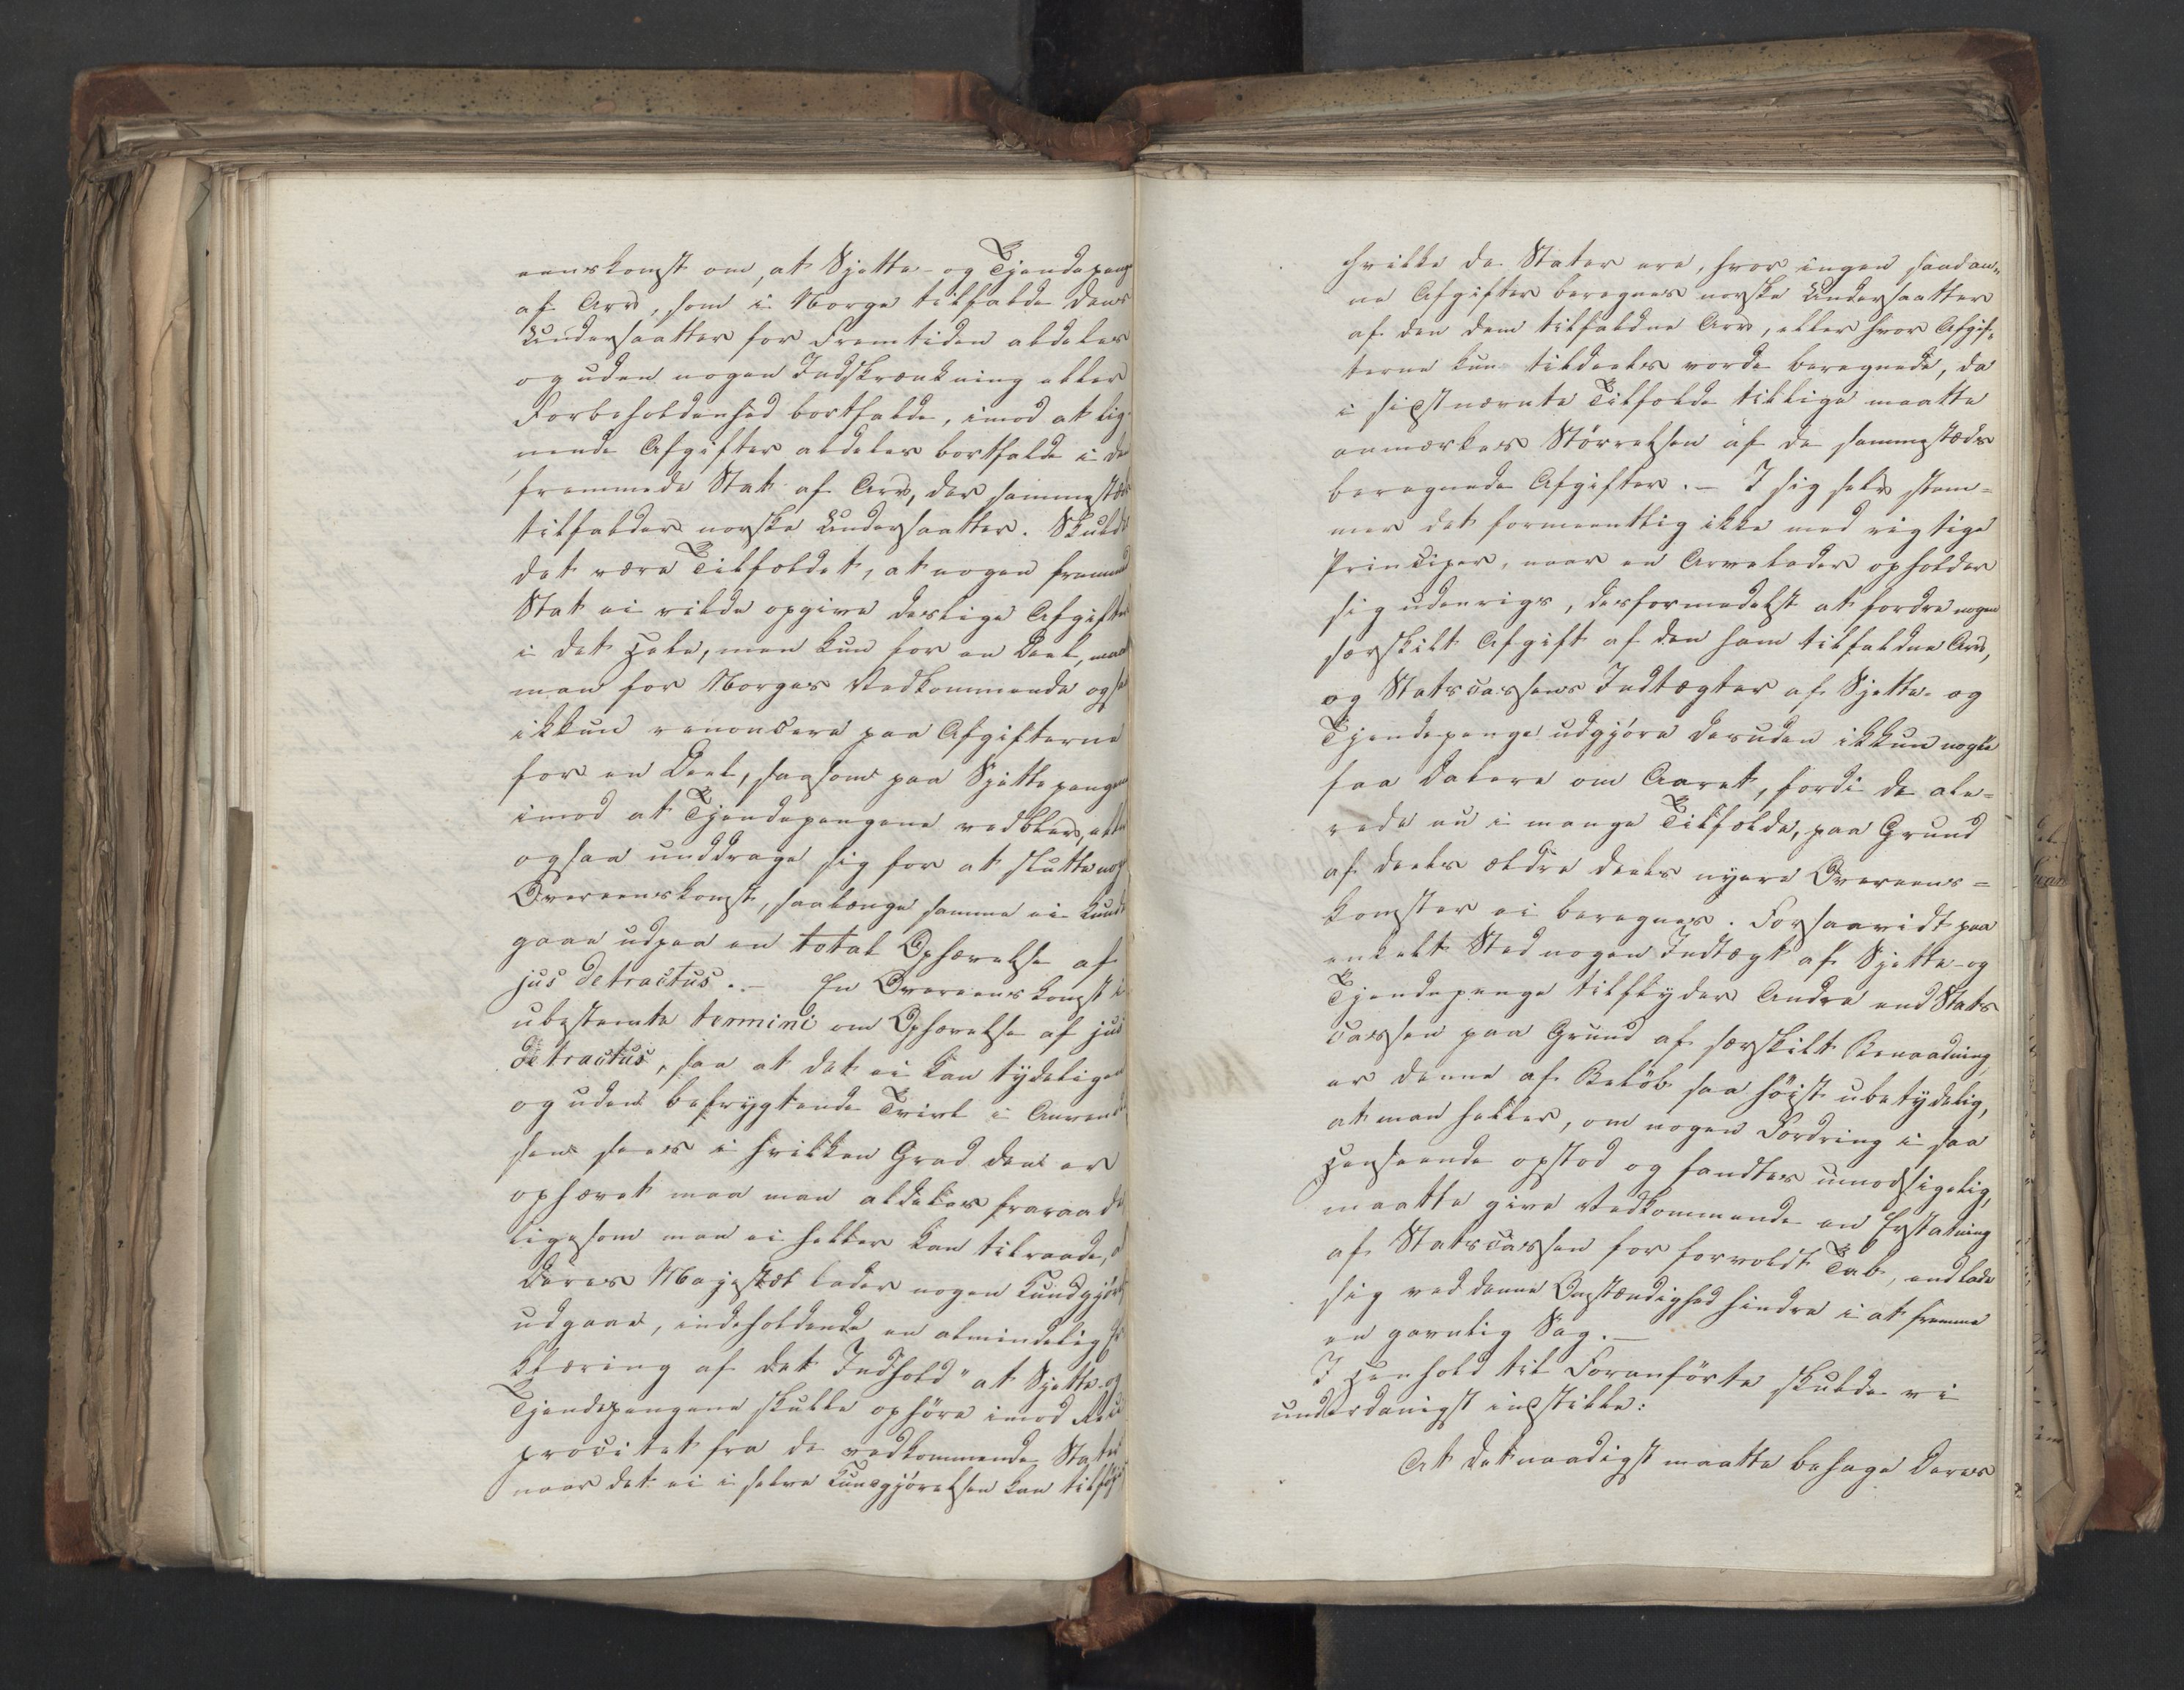 eenskomst om, at Sjette- og Tjendepenge
af Arv, som i Norge tilfalde dens
Undersaatter for Fremtiden aldeles
og uden nogen Indskrænkning eller
Forbeholdenhed bortfalde, imod at lig-
nende Afgifter aldeles bortfalde i den
fremmede Stat af Arv, der sammestæds
tilfalder norske Undersaatter. Skulde
det være Tilfældet, at nogen fremmed
Stat ei vilde opgive deslige Afgifter
i det Hele, men kun for en Deel, maa
man for Norges Vedkommende ogsaa
ikkun renoncere paa Afgifterne
for en Deel, saasom paa Sjettepengene
imod at Tjendepengene vedblev, eller
ogsaa unddrage sig for at slutte nogen
Overeenskomst, saalænge samme ei kunde
gaae udpaa en total Ophævelse af
jus detractus. — En Overeenskomst i
ubestemte termini om Ophævelse af jus
detractus, saa at det ei kan tydeligen
og uden befrygtende Tvivl i Anvendel
sen sees i hvilken Grad den er
ophævet maa man aldeles fraraade
ligesom man ei heller kan tilraade, at
Deres Majestæt lader nogen Kundgjörelse
udgaae, indeholdende en almindelig Er
klæring af det Indhold "at Sjette- og
Tjendepengene skulle ophöre imod Reci
procitet fra de vedkommende Stater
naar det ei i selve Kundgjörelsen kan tilföies
hvilke de Stater ere, hvor ingen saadan-
ne Afgifter beregnes norske Undersaatter
af den dem tilfaldne Arv, eller hvor Afgif-
terne kun tildeels vorde beregnede, da
i sidstnævnte Tilfælde tillige maatte
anmærkes Störrelsen af de sammestæds
beregnede Afgifter. — I sig selv stem-
mer det formeentlig ikke med rigtige
Principer, naar en Arvelader opholder
sig udenrigs, desformedelst at fordre nogen
særskilt Afgift af den ham tilfaldne Arv,
og Statscassens Indtægter af Sjette- og
Tjendepenge udgjöre desuden ikkun nogle
faa Dalere om Aaret, fordi de alle-
rede nu i mange Tilfælde, paa Grund
af deels ældre deels nyere Overeens-
komster ei beregnes. Forsaavidt paa
enkelt Sted nogen Indtægt af Sjette- og
Tjendepenge tilflyder Andre end Stats
cassen paa Grund af særskilt Benaadning
er denne af Belöb saa höist ubetydelig,
at man heller, om nogen Fordring i saa
Henseende opstod og fandtes uimodsigelig,
maatte give Vedkommende en Erstatning
af Statscassen for forvoldt Tab, end lade
sig ved denne Omstændighed hindre i at fremme
en gavnlig Sag. —
I Henhold til Foranförte skulde vi
underdanigst indstille:
At det naadigst maatte behage Deres